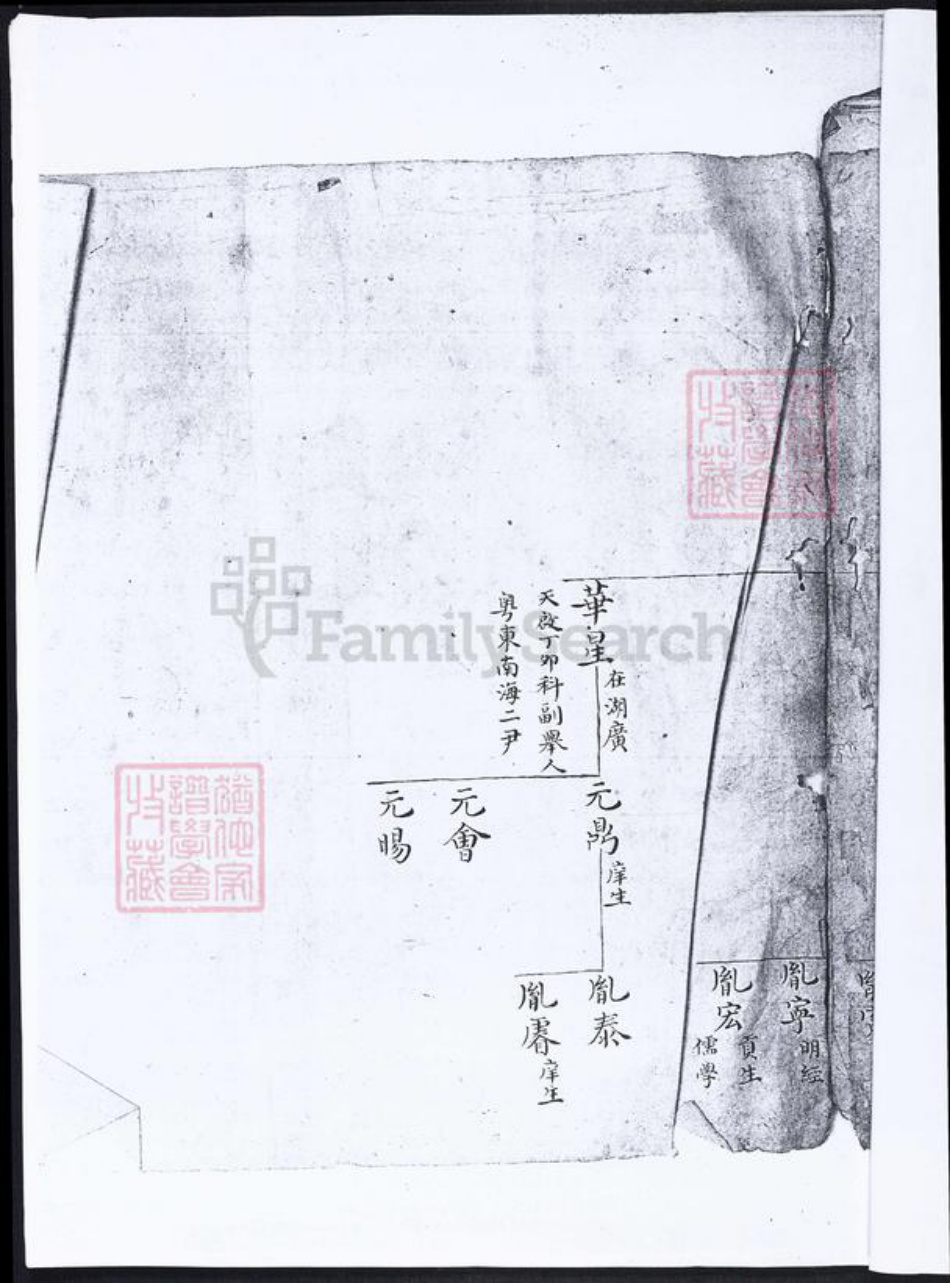 華皇
在湖廣
天啟丁卯科副舉人
粵東南海二尹
元鼎
庠生
元會
元賜
胤寧
明經
胤宏
貢生
儒學
胤泰
胤
庠生
譜學會
收藏
FamilySearch
譜學會
收藏